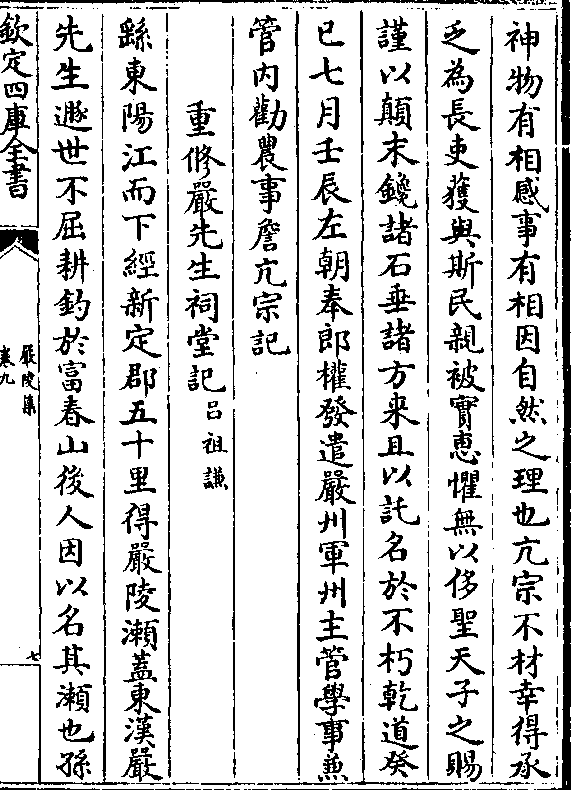 神物有相感事有相因自然之理也亢宗不材幸得承
乏為長吏獲與斯民親被實惠懼無以侈聖天子之賜
謹以顛末鑱諸石垂諸方来且以託名於不朽乾道癸
巳七月壬辰左朝奉郎權發遣嚴州軍州主管學事兼
管内勸農事詹亢宗記
重修嚴先生祠堂記 吕祖謙
繇東陽江而下經新定郡五十里得嚴陵瀬蓋東漢嚴
先生遯世不屈耕釣於富春山後人因以名其瀬也孫
欽定四庫全書
嚴陵集
卷九
七